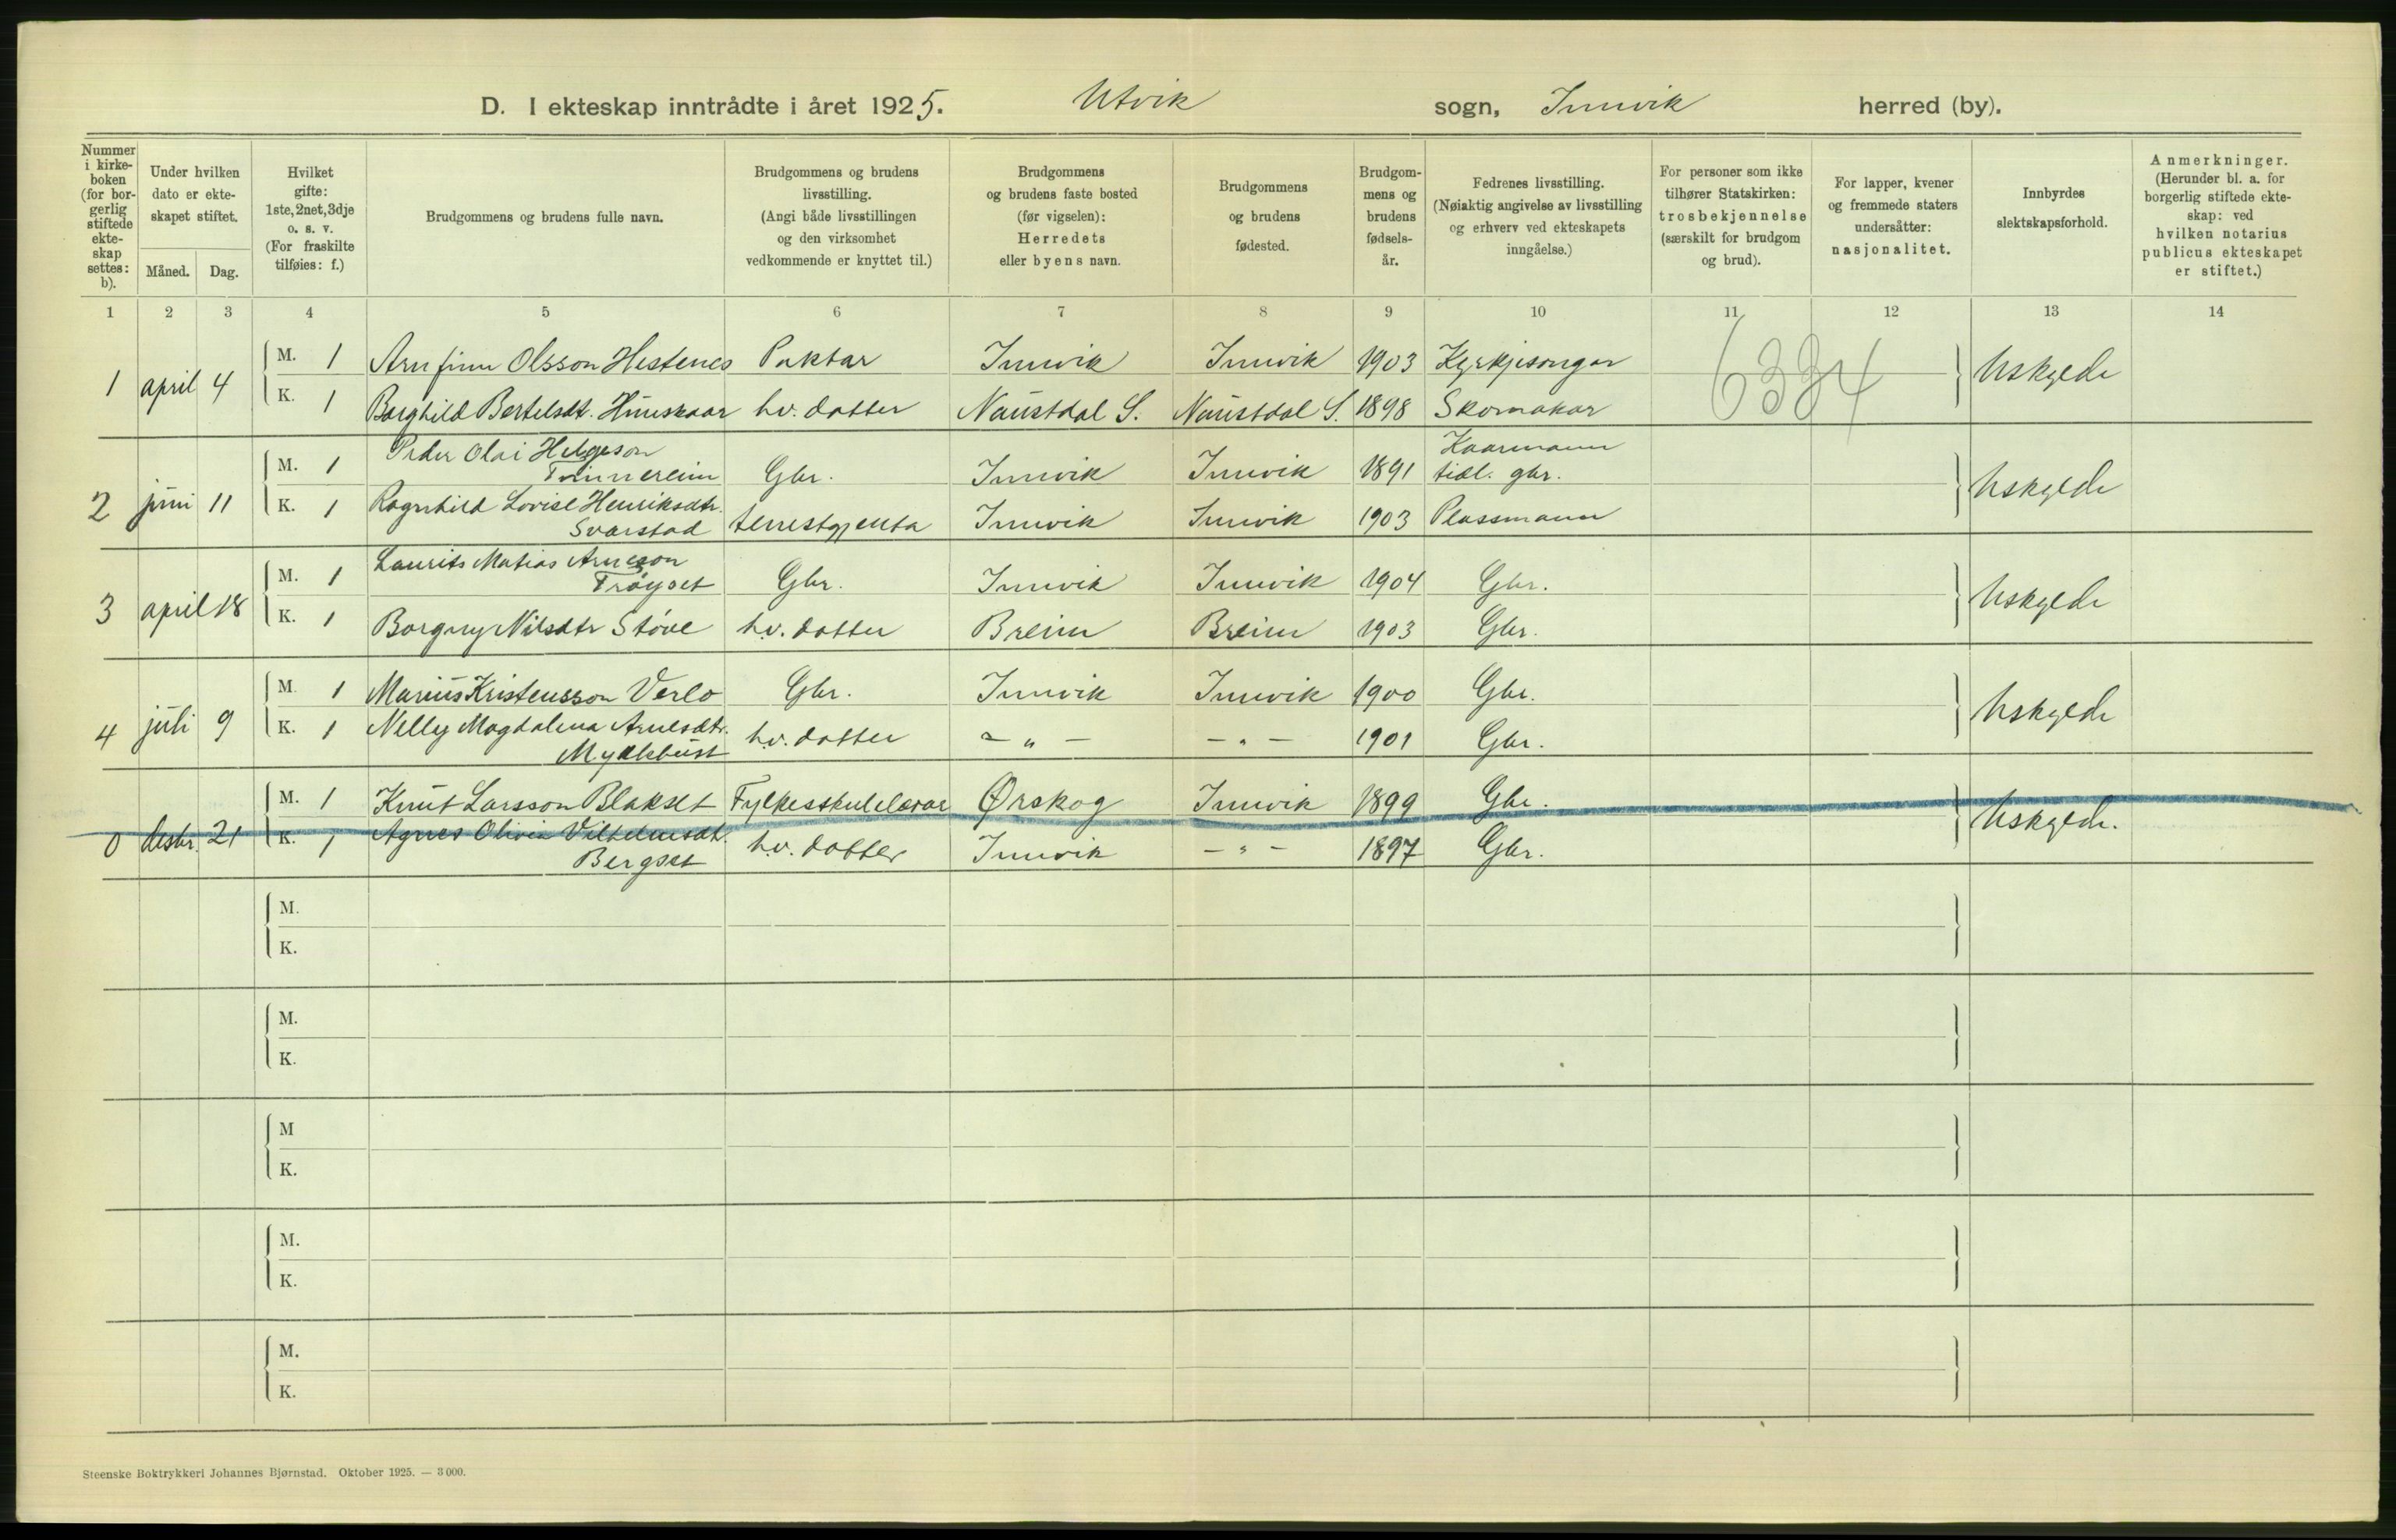 D. I ekteskap inntrådte i året 1925. Utvik sogn, Innvik herred (by).
Nummer i kirkeboken (for borgerlig stiftede ekteskap settes: b).
Under hvilken dato er ekteskapet stiftet.
Måned. Dag.
Hvilket gifte: 1ste, 2net, 3dje o. s. v. (For fraskilte tilføies: f.)
Brudgommens og brudens fulle navn.
Brudgommens og brudens livsstilling. (Angi både livsstillingen og den virksomhet vedkommende er knyttet til.)
Brudgommens og brudens faste bosted (før vigselen): Herredets eller byens navn.
Brudgommens og brudens fødested.
Brudgommens og brudens fødselsår.
Fedrenes livsstilling. (Nøiaktig angivelse av livsstilling og erhverv ved ekteskapets inngåelse.)
For personer som ikke tilhører Statskirken: trosbekjennelse (særskilt for brudgom og brud).
For lapper, kvener og fremmede staters undersåtter: nasjonalitet.
Innbyrdes slektskapsforhold.
Anmerkninger. (Herunder bl. a. for borgerlig stiftede ekteskap: ved hvilken notarius publicus ekteskapet er stiftet.)
1 2 3 4 5 6 7 8 9 10 11 12 13 14
6334
1 april 4 M. 1 Arnfinn Olsson Hestenes Paktar Innvik Innvik 1903 Kyrkjesongar Uskylde
K. 1 Borghild Bertelsdt. Hunskaar hv. dotter Naustdal S. Naustdal S. 1898 Skomakar
2 juni 11 M. 1 Peder Olai Helgeson
Tvinnereim Gbr. Innvik Innvik 1891 Kaarmann
tidl. gbr. Uskylde
K. 1 Ragnhild Lovise Henriksdtr.
Svarstad tenestgjenta Innvik Innvik 1903 Plassmann
3 april 18 M. 1 Laurits Matias Arneson
Trøyset Gbr. Innvik Innvik 1904 Gbr. Uskylde
K. 1 Borgny Nilsdtr Støve hv. dotter Breim Breim 1903 Gbr.
4 juli 9 M. 1 Marius Kristensson Verlo Gbr. Innvik Innvik 1900 Gbr. Uskylde
K. 1 Nelly Magdalena Arnesdtr.
Myklebust hv. dotter - " - - " - 1901 Gbr.
0 desbr. 21 M. 1 Knut Larsson Blakset Fylkesskulelærar Ørskog Innvik 1899 Gbr. Uskylde.
K. 1 Agnes Olivia Vilhelmsdt.
Bergset hv. dotter Innvik - " - 1897 Gbr.
M.
K.
M.
K.
M
K.
M.
K.
M.
K.
Steenske Boktrykkeri Johannes Bjørnstad. Oktober 1925. — 3000.